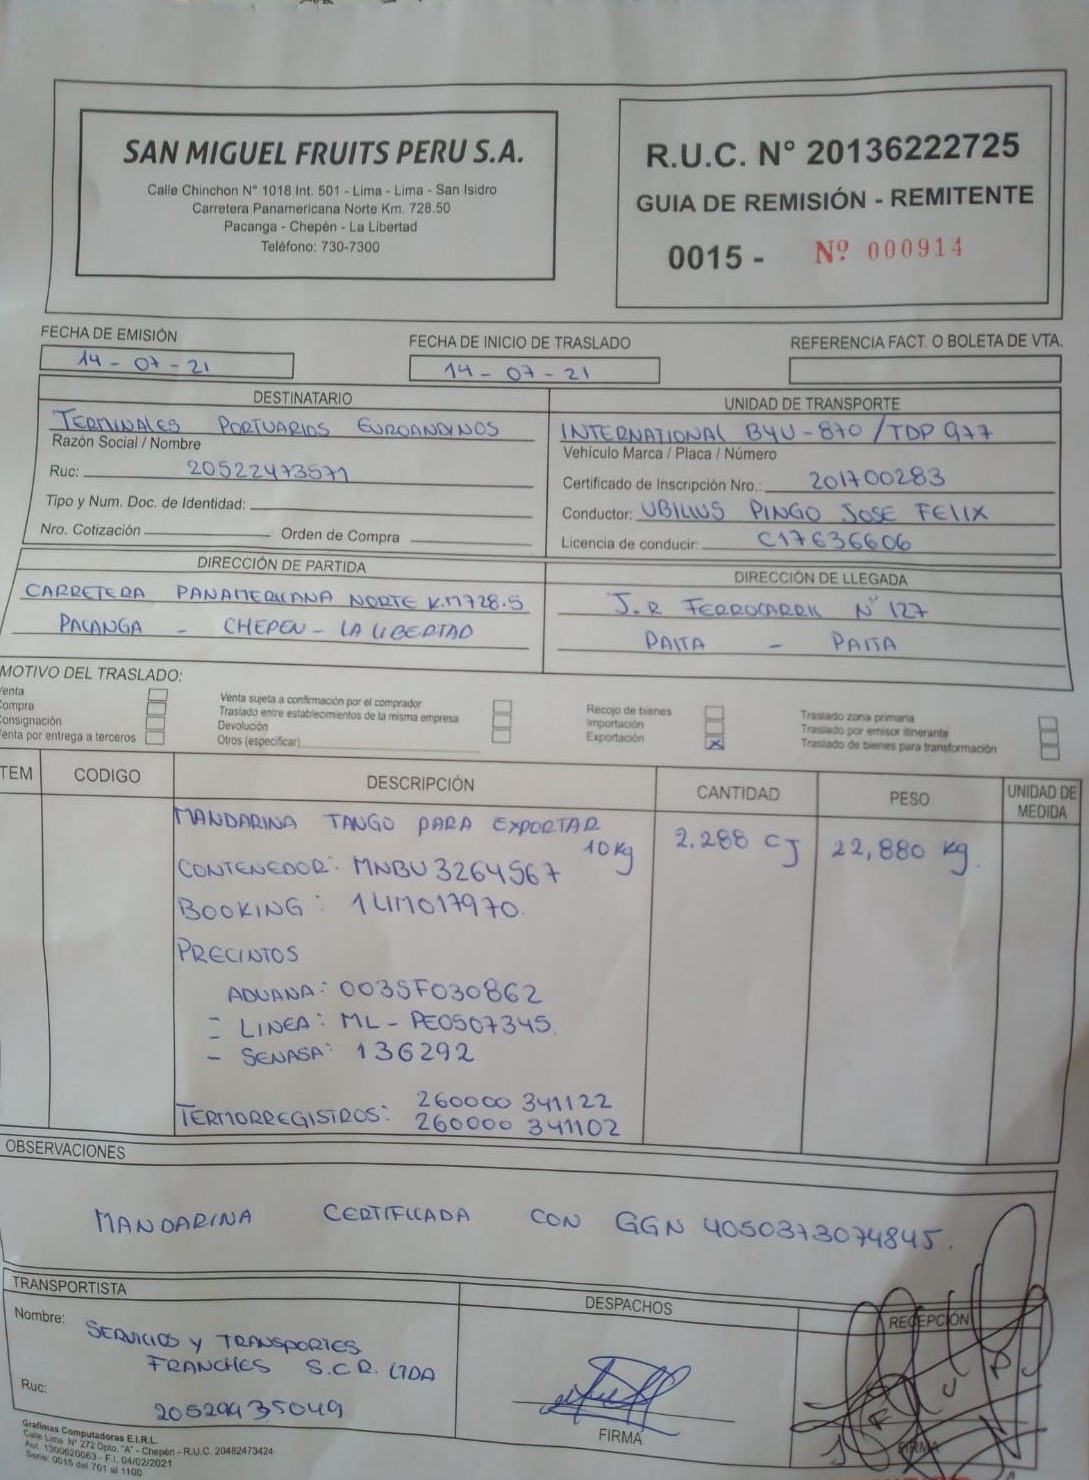 SAN MIGUEL FRUITS PERU S.A.
Calle Chinchon N° 1018 Int. 501 - Lima - Lima - San Isidro
Carretera Panamericana Norte Km. 728.50
Pacanga - Chepén - La Libertad
Teléfono: 730-7300
R.U.C. N° 20136222725
GUIA DE REMISIÓN - REMITENTE
0015 - Nº 000914
FECHA DE EMISIÓN
14-07-21
FECHA DE INICIO DE TRASLADO
14-07-21
REFERENCIA FACT. O BOLETA DE VTA.
DESTINATARIO
TERMINALES PORTUARIOS EUROANDINOS
Razón Social / Nombre
Ruc: 20522473571
Tipo y Num. Doc. de Identidad:
Nro. Cotización Orden de Compra
UNIDAD DE TRANSPORTE
INTERNATIONAL B4U-870 / TDP 977
Vehiculo Marca / Placa / Número
Certificado de Inscripción Nro.: 201700283
Conductor: UBILLUS PINGO JOSE FELIX
Licencia de conducir: C17636606
DIRECCIÓN DE PARTIDA
CARRETERA PANAMERICANA NORTE K.M728.5
PACANGA - CHEPEN - LA LIBERTAD
DIRECCIÓN DE LLEGADA
J.R FERROCARRIL N° 127
PAITA - PAITA
MOTIVO DEL TRASLADO:
Venta
Compra
Consignación
Venta por entrega a terceros
Venta sujeta a confirmación por el comprador
Traslado entre establecimientos de la misma empresa
Devolución
Otros (especificar)
Recojo de bienes
Importación
Exportación X
Traslado zona primaria
Traslado por emisor itinerante
Traslado de bienes para transformación
ITEM CODIGO DESCRIPCIÓN CANTIDAD PESO UNIDAD DE MEDIDA
MANDARINA TANGO PARA EXPORTAR 10 Kg 2.288 CJ 22,880 Kg.
CONTENEDOR: MNBU 3264567
BOOKING: 1LIM017970.
PRECINTOS
ADUANA: 003SF030862
- LINEA: ML-PE0507345.
- SENASA: 136292
TERMORREGISTROS: 260000 341122
260000 341102
OBSERVACIONES
MANDARINA CERTIFICADA CON GGN 4050373074845.
TRANSPORTISTA
Nombre: SERVICIOS Y TRANSPORTES
FRANCHES S.C.R. LTDA
Ruc: 20529435049
DESPACHOS
FIRMA
RECEPCIÓN
FIRMA
Grafimas Computadoras E.I.R.L.
Calle Lima N° 272 Dpto. "A" - Chepén - R.U.C. 20482473424
Aut. 1300620063 - F.I. 04/02/2021
Serie: 0015 del 701 al 1100